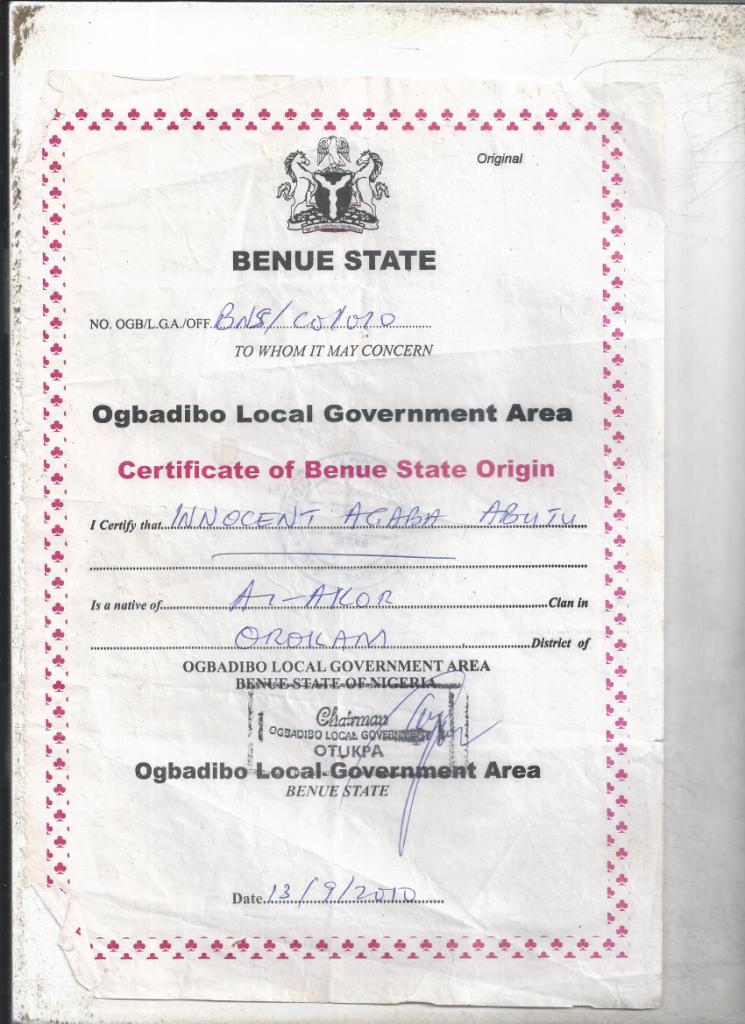 Original
BENUE STATE
NO. OGB/L.G.A./OFF. BNS/
TO WHOM IT MAY CONCERN
Ogbadibo Local Government Area
Certificate of Benue State Origin
I Certify that INNOCENT AGABA ABUTU
Is a native of AI-AKOR Clan in
OROKAM District of
OGBADIBO LOCAL GOVERNMENT AREA
BENUE STATE OF NIGERIA
Chairman
OGBADIBO LOCAL GOVERNMENT
OTUKPA
Ogbadibo Local Government Area
BENUE STATE
Date 13/9/2010